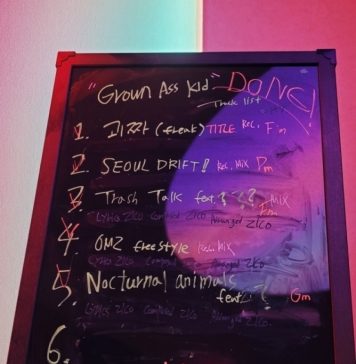 "Grown Ass Kid" DONE!
Track list
1. 괴짜 (feat) TITLE Rec. Fm
2. SEOUL DRIFT! Rec. MIX Dm
3. Trash Talk feat. ? MIX Fm
Lyrics ZICO Composed ZICO Arranged ZICO
4 OMZ freestyle Rec. MIX
Lyrics ZICO Arranged ZICO
5. Nocturnal animals
feat. ? Gm
Lyrics ZICO Composed ZICO Arranged ZICO
6.